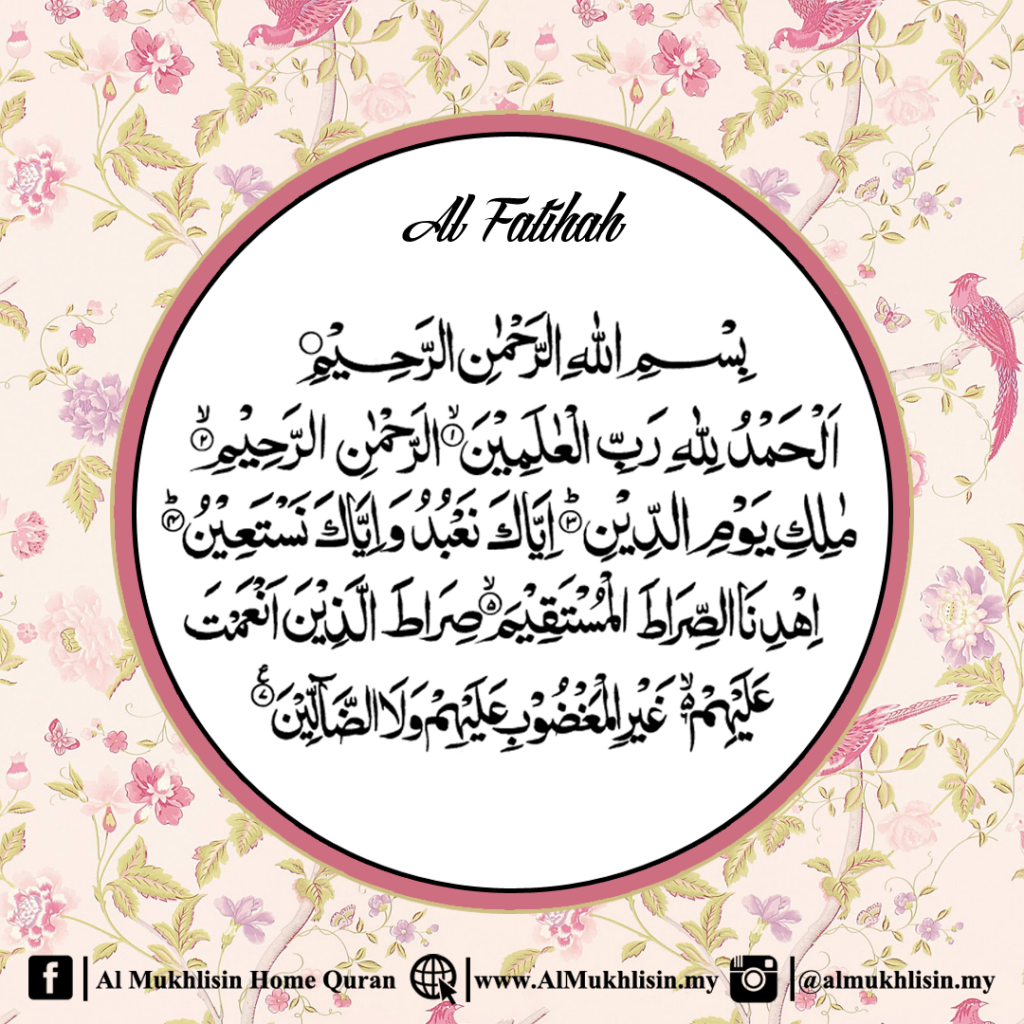 Al Fatihah
بِسْمِ اللّٰهِ الرَّحْمٰنِ الرَّحِيْمِ
اَلْحَمْدُ لِلّٰهِ رَبِّ الْعٰلَمِيْنَۙ ۱ الرَّحْمٰنِ الرَّحِيْمِۙ ۲
مٰلِكِ يَوْمِ الدِّيْنِۗ ۳ اِيَّاكَ نَعْبُدُ وَاِيَّاكَ نَسْتَعِيْنُۗ ۴
اِهْدِنَا الصِّرَاطَ الْمُسْتَقِيْمَۙ ۵ صِرَاطَ الَّذِيْنَ اَنْعَمْتَ
عَلَيْهِمْ ەۙ غَيْرِ الْمَغْضُوْبِ عَلَيْهِمْ وَلَا الضَّاۤلِّيْنَ ࣖ ۷
Al Mukhlisin Home Quran www.AlMukhlisin.my @almukhlisin.my